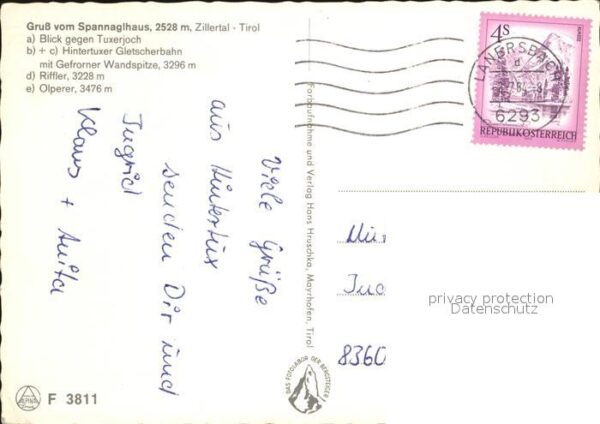 Gruß vom Spannaglhaus, 2528 m, Zillertal - Tirol
a) Blick gegen Tuxerjoch
b) + c) Hintertuxer Gletscherbahn
mit Gefrorner Wandspitze, 3296 m
d) Riffler, 3228 m
e) Olperer, 3476 m
Viele Grüße
aus Hintertux
senden Dir und
Ingrid
Klaus + Anita
Farbaufnahme und Verlag Hans Hruschka, Mayrhofen, Tirol
4S
LANERSBACH
6293
REPUBLIK ÖSTERREICH
8360
privacy protection
Datenschutz
DAS FOTOLABOR DER BERGSTEIGER
F 3811